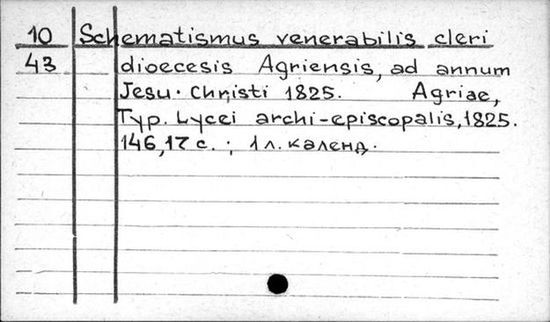 10 Schematismus venerabilis cleri
43 dioecesis Agriensis, ad annum
Jesu. Christi 1825. Agriae,
Typ. Lycei archi-episcopalis, 1825.
146, 17 с. ; 1 л. календ.